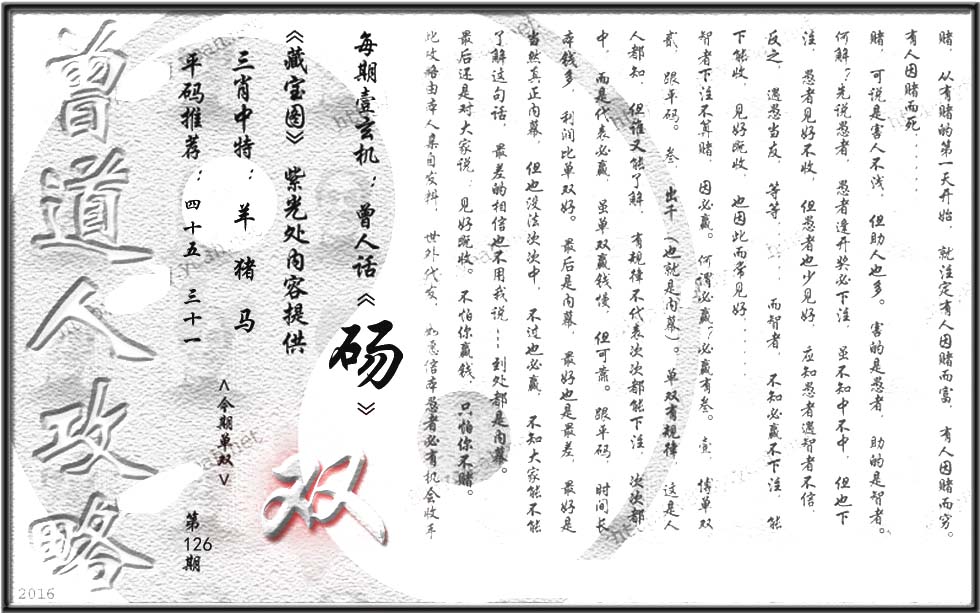 赌，从有赌的第一天开始，就注定有人因赌而富，有人因赌而穷。
有人因赌而死......
赌，可说是害人不浅，但助人也多。害的是愚者，助的是智者。
何解？先说愚者，愚者逢开奖必下注，虽不知中不中，但也下
注，愚者见好不收，但愚者也少见好，应知愚者遇智者不信，
反之，遇愚当友，等等......而智者，不知必赢不下注，能
下能收，见好既收，也因此而常见好......
智者下注不算赌，因必赢。何谓必赢？必赢有叁。壹，博单双
贰，跟平码。叁，出千（也就是内幕）。单双有规律，这是人
人都知，但谁又能了解，有规律不代表次次都能下注，次次都
中，而是代表必赢，虽单双赢钱慢，但可靠。跟平码，时间长
本钱多，利润比单双好。最后是内幕，最好也是最差，最好是
当然真正内幕，但也没法次次中，不过也必赢，不知大家能不能
了解这句话，最差的相信也不用我说---到处都是内幕。
最后还是对大家说：见好既收。不怕你赢钱，只怕你不赌。
此攻略由本人集自资料，世外代友，如愿信本愚者必有机会收丰
每期壹玄机：曾人话《砀》
《藏宝图》紫光处内容提供
三肖中特：羊 猪 马
平码推荐：四十五 三十一
<今期单双>
双
第126期
曾道人攻略
2016